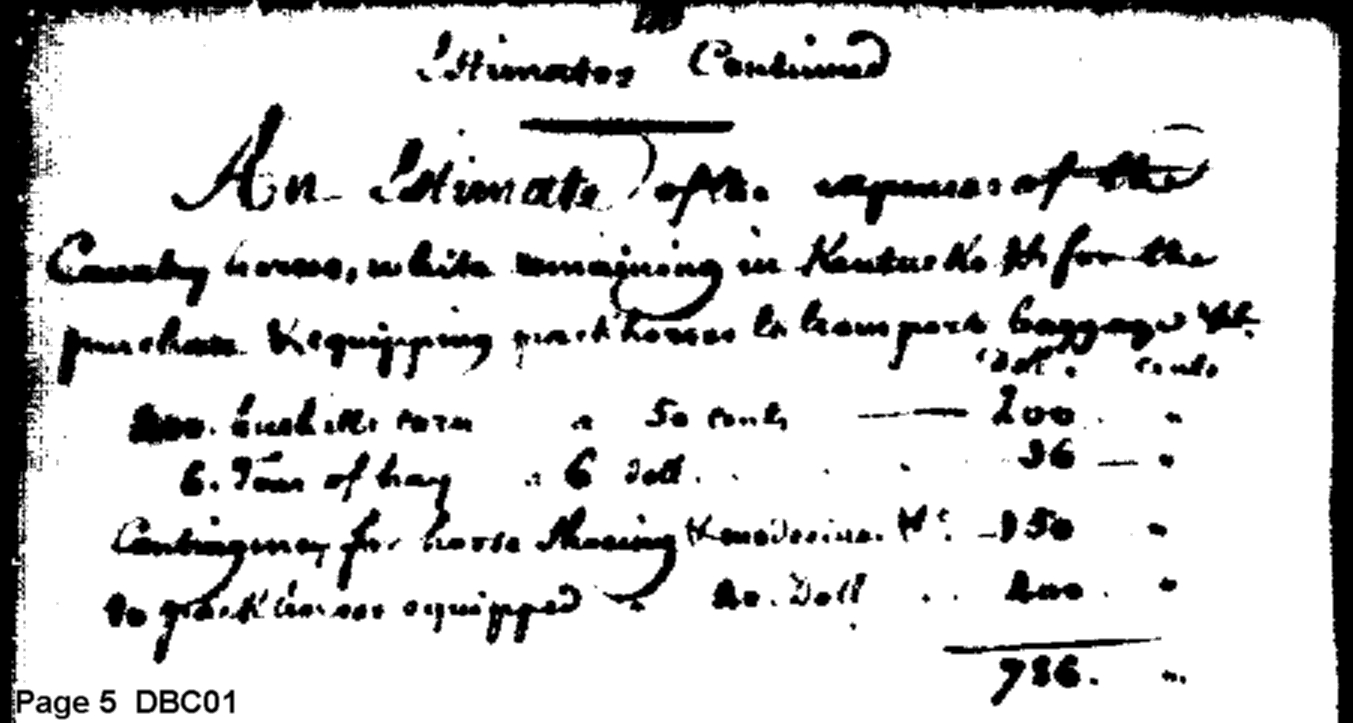 Estimates Continued
An Estimate of the expenses of the
Cavalry horses, while remaining in Kentucke &c for the
purchase & equipping packhorses to transport baggage &c.
Doll. cents
400. bushells corn a 50 cents — 200. "
6. Tons of hay a 6 doll. . . 36 — "
Contingency for horse Shoeing & medecine. &c. — 150 "
10 packhorses equipped a 40. Doll . . 400. "
786. "
Page 5 DBC01